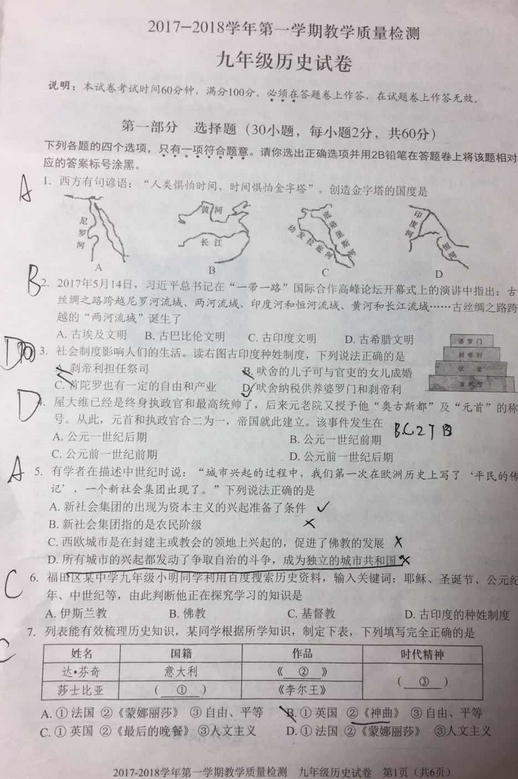 2017-2018学年第一学期教学质量检测
九年级历史试卷
说明：本试卷考试时间60分钟，满分100分。必须在答题卷上作答，在试题卷上作答无效。
第一部分 选择题（30小题，每小题2分，共60分）
下列各题的四个选项，只有一项符合题意。请你选出正确选项并用2B铅笔在答题卷上将该题相对
应的答案标号涂黑。
A
1. 西方有句谚语：“人类惧怕时间，时间惧怕金字塔”。创造金字塔的国度是
尼罗河
黄河
长江
幼发拉底河
底格里斯河
印度河
恒河
A B C D
B
2. 2017年5月14日，习近平总书记在“一带一路”国际合作高峰论坛开幕式上的演讲中指出：古
丝绸之路跨越尼罗河流域、两河流域、印度河和恒河流域、黄河和长江流域……古丝绸之路跨
越的“两河流域”诞生了
A. 古埃及文明 B. 古巴比伦文明 C. 古印度文明 D. 古希腊文明
D
3. 社会制度影响人们的生活。读右图古印度种姓制度，下列说法正确的是
婆罗门
刹帝利
吠舍
首陀罗
A. 刹帝利担任祭司 B. 吠舍的儿子可与官吏的女儿成婚
C. 首陀罗也有一定的自由和产业 D. 吠舍纳税供养婆罗门和刹帝利
D
4. 屋大维已经是终身执政官和最高统帅了，后来元老院又授予他“奥古斯都”及“元首”的称
号。从此，元首和执政官合二为一，帝国就此建立。该事件发生在
BC27
A. 公元一世纪后期 B. 公元一世纪前期
C. 公元前一世纪前期 D. 公元前一世纪后期
A
5. 有学者在描述中世纪时说：“城市兴起的过程中，我们第一次在欧洲历史上写了‘平民的传
记’，一个新社会集团出现了。”下列说法正确的是
A. 新社会集团的出现为资本主义的兴起准备了条件 ✓
B. 新社会集团指的是农民阶级 ×
C. 西欧城市是在封建主或教会的领地上兴起的，促进了佛教的发展 ×
D. 所有城市的兴起都发动了争取自治的斗争，成为独立的城市共和国 ×
C
6. 福田区某中学九年级小明同学利用百度搜索历史资料，输入关键词：耶稣、圣诞节、公元纪
年、中世纪等，由此判断他正在探究学习的知识是
A. 伊斯兰教 B. 佛教 C. 基督教 D. 古印度的种姓制度
C
7. 列表能有效梳理历史知识，某同学根据所学知识，制定下表，下列填写完全正确的是
姓名 国籍 作品 时代精神
达•芬奇 意大利 《 ② 》 （ ③ ）
莎士比亚 （ ① ） 《李尔王》
A. ①法国 ②《蒙娜丽莎》 ③自由、平等 B. ①英国 ②《神曲》 ③自由、平等
C. ①英国 ②《最后的晚餐》 ③人文主义 D. ①法国 ②《蒙娜丽莎》 ③人文主义
2017-2018学年第一学期教学质量检测 九年级历史试卷 第1页（共6页）